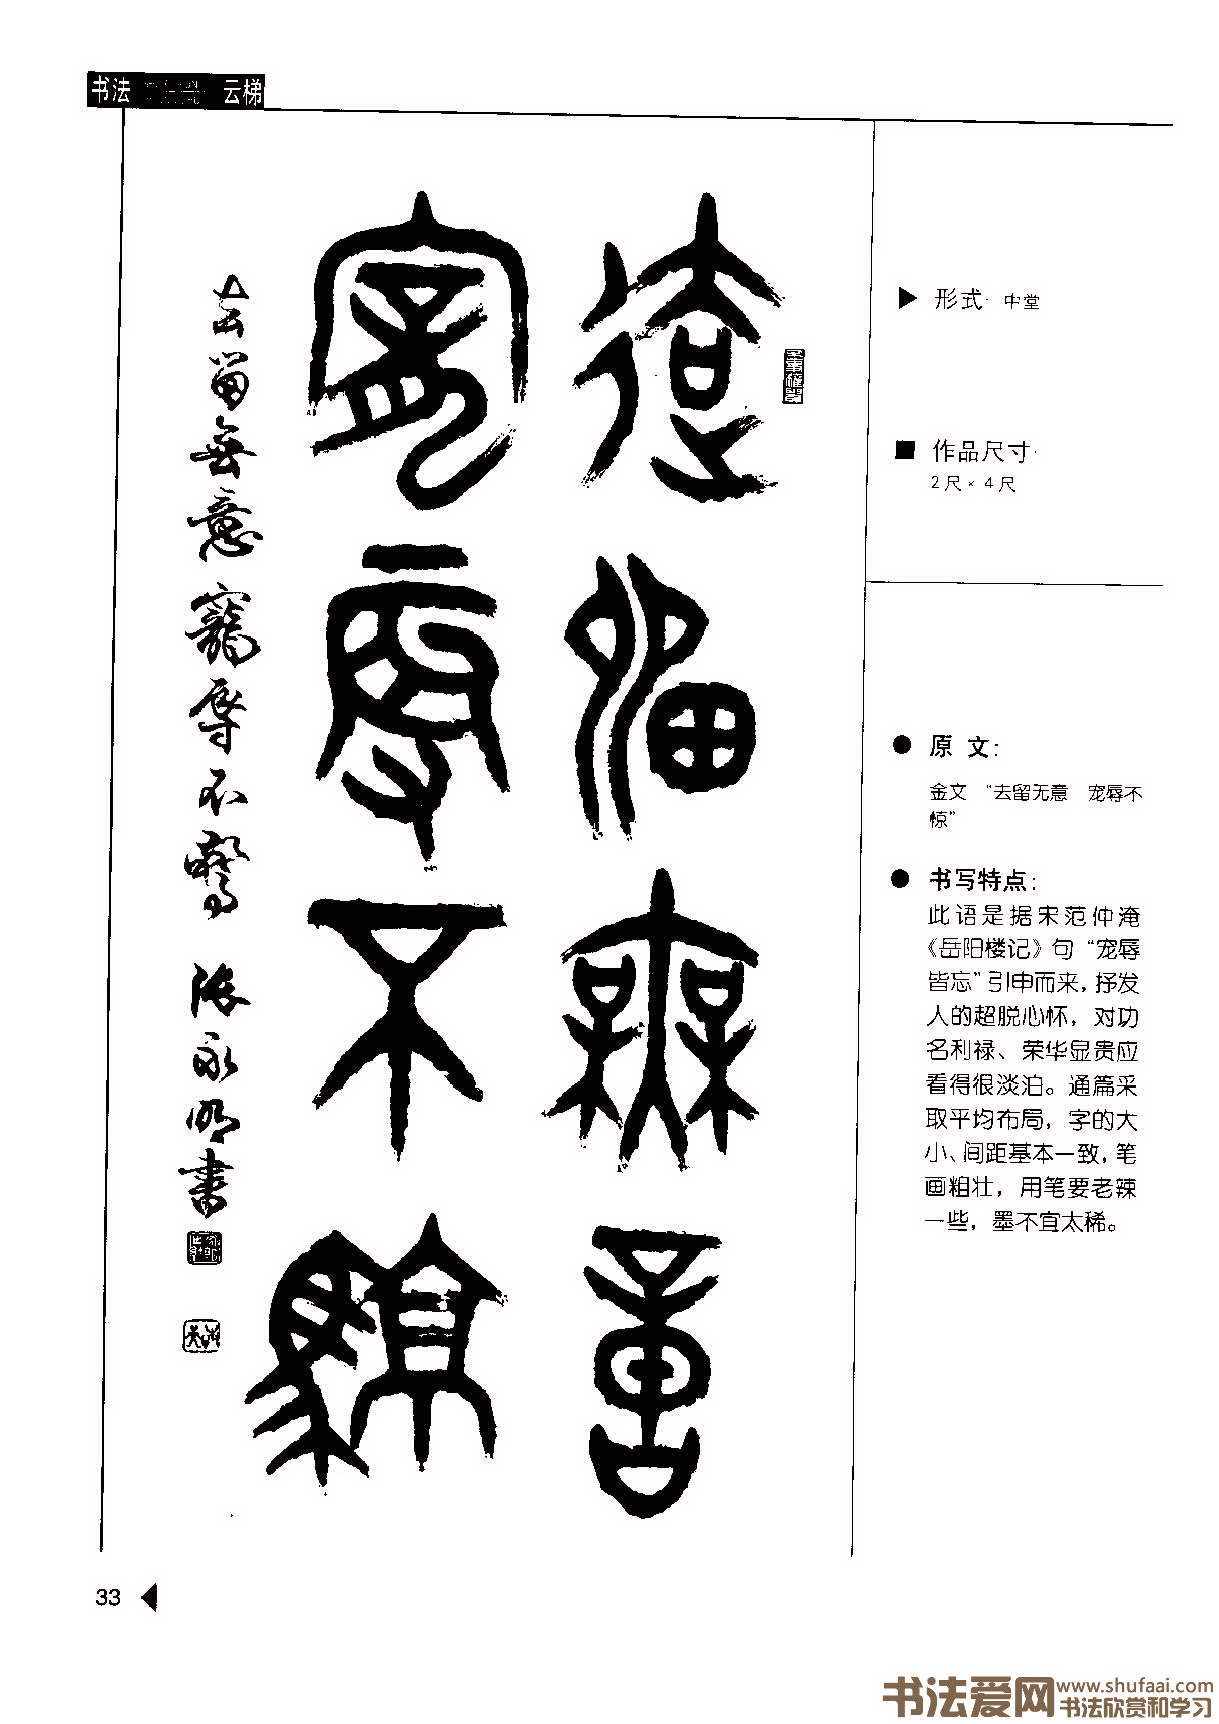 书法 云梯
去留無意
寵辱不驚
去留無意寵辱不驚 涂永明書
▶ 形式· 中堂
■ 作品尺寸·
2尺×4尺
● 原 文：
金文 “去留无意 宠辱不
惊”
● 书写特点：
此语是据宋范仲淹
《岳阳楼记》句“宠辱
皆忘”引申而来，抒发
人的超脱心怀，对功
名利禄、荣华显贵应
看得很淡泊。通篇采
取平均布局，字的大
小、间距基本一致，笔
画粗壮，用笔要老辣
一些，墨不宜太稀。
33
书法爱网 www.shufaai.com
书法欣赏和学习